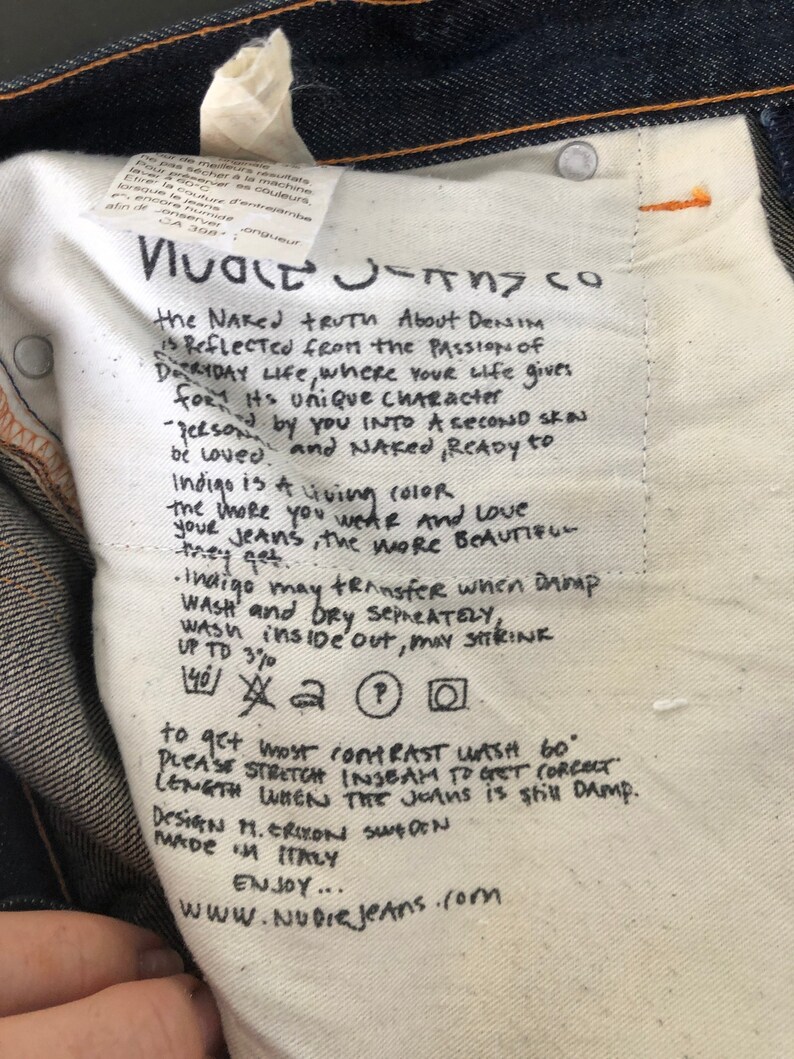 de meilleurs résultats
ne pas sécher à la machine.
Pour préserver les couleurs,
laver à 40°C
Etirer la couture d'entrejambe
lorsque le jeans
encore humide
afin de conserver longueur
CA 398
Nudie Jeans co
the Naked truth About Denim
is Reflected from the Passion of
Everyday Life, where your Life gives
form its unique character
- formed by you into a second skin
personal and naked, ready to
be loved.
Indigo is a living color
the more you wear and love
your jeans, the more beautiful
they get.
.Indigo may transfer when damp
wash and dry sepreately,
wash inside out, may shrink
up to 3%
40 P
to get most contrast wash 60°
please stretch inseam to get correct
length when the jeans is still damp.
Design M. Erixon Sweden
made in Italy
Enjoy...
www.nudiejeans.com